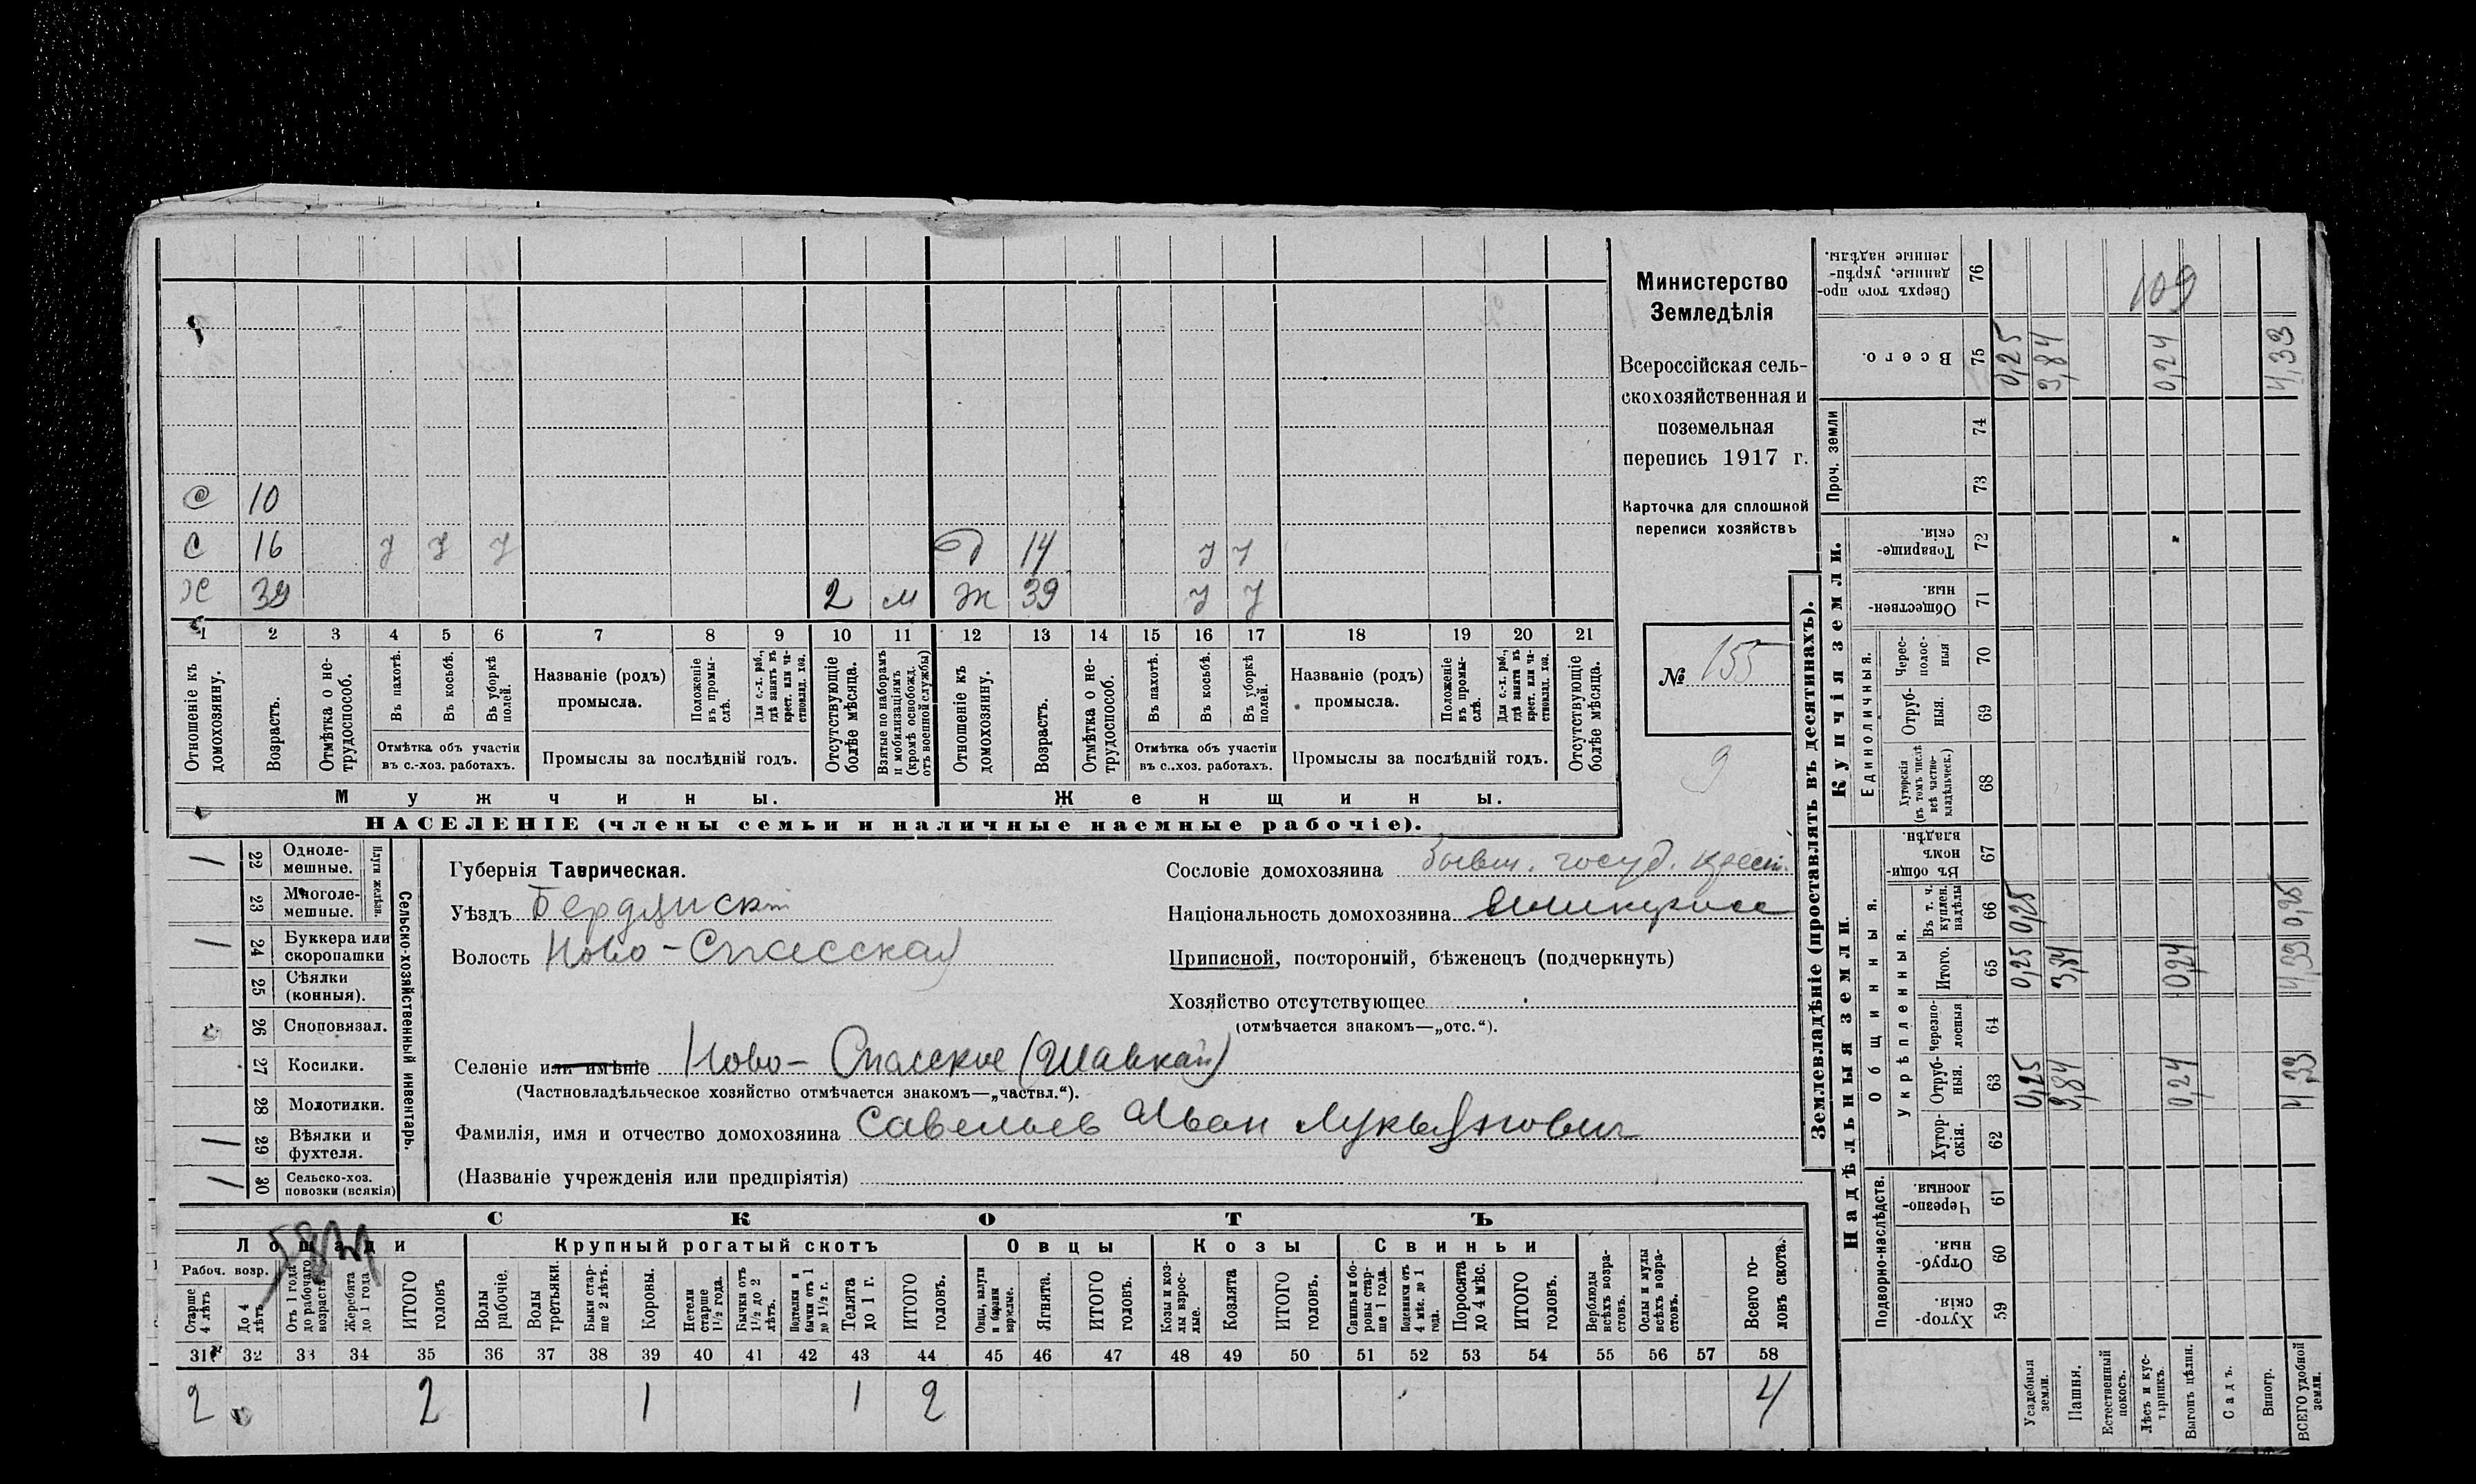 С 10
С 16 У У У Д 14 У У
Х 39 2 м Ж 39 У У
1 2 3 4 5 6 7 8 9 10 11 12 13 14 15 16 17 18 19 20 21
Отношеніе къ домохозяину.
Возрастъ.
Отмѣтка о нетрудоспособ.
Въ пахотѣ.
Въ косьбѣ.
Въ уборкѣ полей.
Отмѣтка объ участіи
въ с.-хоз. работахъ.
Названіе (родъ)
промысла.
Положеніе въ промыслѣ.
Для с.-х. раб., гдѣ занятъ въ крест. или частновлад. хоз.
Промыслы за послѣдній годъ.
Отсутствующіе болѣе мѣсяца.
Взятые по наборамъ и мобилизаціямъ (кромѣ освобожд. отъ военной службы)
Отношеніе къ домохозяину.
Возрастъ.
Отмѣтка о нетрудоспособ.
Въ пахотѣ.
Въ косьбѣ.
Въ уборкѣ полей.
Отмѣтка объ участіи
въ с.-хоз. работахъ.
Названіе (родъ)
промысла.
Положеніе въ промыслѣ.
Для с.-х. раб., гдѣ занята въ крест. или частновлад. хоз.
Промыслы за послѣдній годъ.
Отсутствующіе болѣе мѣсяца.
Мужчины. Женщины.
НАСЕЛЕНІЕ (члены семьи и наличные наемные рабочіе).
Министерство
Земледѣлія
Всероссійская сель-
скохозяйственная и
поземельная
перепись 1917 г.
Карточка для сплошной
переписи хозяйствъ
№ 155
9
Сельско-хозяйственный инвентарь.
Плуги желѣзн.
1 22 Однолемешные.
23 Многолемешные.
1 24 Буккера или скоропашки
25 Сѣялки (конныя).
26 Сноповязал.
27 Косилки.
28 Молотилки.
1 29 Вѣялки и фухтеля.
1 30 Сельско-хоз. повозки (всякія)
Губернія Таврическая.
Уѣздъ Бердянскій
Волость Ново-Спасская
Сословіе домохозяина бывш. госуд. крест.
Національность домохозяина
Приписной, посторонній, бѣженецъ (подчеркнуть)
Хозяйство отсутствующее
(отмѣчается знакомъ—„отс.“).
Селеніе или имѣніе Ново-Спасское (Шавкай)
(Частновладѣльческое хозяйство отмѣчается знакомъ—„частвл.“).
Фамилія, имя и отчество домохозяина Савельев Иван Лукьянович
(Названіе учрежденія или предпріятія)
СКОТЪ
Лошади Крупный рогатый скотъ Овцы Козы Свиньи
Рабоч. возр.
Старше 4 лѣтъ
До 4 лѣтъ
Отъ 1 года до рабочаго возраста
Жеребята до 1 года
ИТОГО головъ
Волы рабочіе.
Волы третьяки.
Быки старше 2 лѣтъ.
Коровы.
Нетели старше 1½ года.
Бычки отъ 1½ до 2 лѣтъ.
Подтелки и бычки отъ 1 до 1½ г.
Телята до 1 г.
ИТОГО головъ.
Овцы, валухи и бараны взрослые.
Ягнята.
ИТОГО головъ.
Козы и козлы взрослые.
Козлята
ИТОГО головъ.
Свиньи и боровы старше 1 года.
Подсвинки отъ 4 мѣс. до 1 года.
Поросята до 4 мѣс.
ИТОГО головъ.
Верблюды всѣхъ возрастовъ.
Ослы и мулы всѣхъ возрастовъ.
Всего головъ скота.
31 32 33 34 35 36 37 38 39 40 41 42 43 44 45 46 47 48 49 50 51 52 53 54 55 56 57 58
2 2 1 1 2 4
Землевладѣніе (проставлять въ десятинахъ).
Надѣльныя земли. Купчія земли. Проч. земли
Подворно-наслѣдств. Общинныя. Единоличныя.
Укрѣпленныя.
Хуторскія. 59
Отрубныя. 60
Черезполосныя. 61
Хуторскія. 62
Отрубныя. 63 0,25 3,84 0,24 4,33
Черезполосныя 64
Итого. 65 0,25 3,84 0,24 4,33
Въ т. ч. куплен. надѣлы 66 0,25 0,25
Въ общинномъ владѣн. 67
Хуторскія (въ томъ числѣ всѣ частновладѣльческ.) 68
Отрубныя. 69
Чересполосныя 70
Общественныя. 71
Товарищескія. 72
73
74
Всего. 75 0,25 3,84 0,24 4,33
Сверхъ того проданные, укрѣпленные надѣлы. 76
109
Усадебныя земли.
Пашня.
Естественный покосъ.
Лѣсъ и кустарникъ.
Выгонъ цѣлин.
Садъ.
Виногр.
ВСЕГО удобной земли.